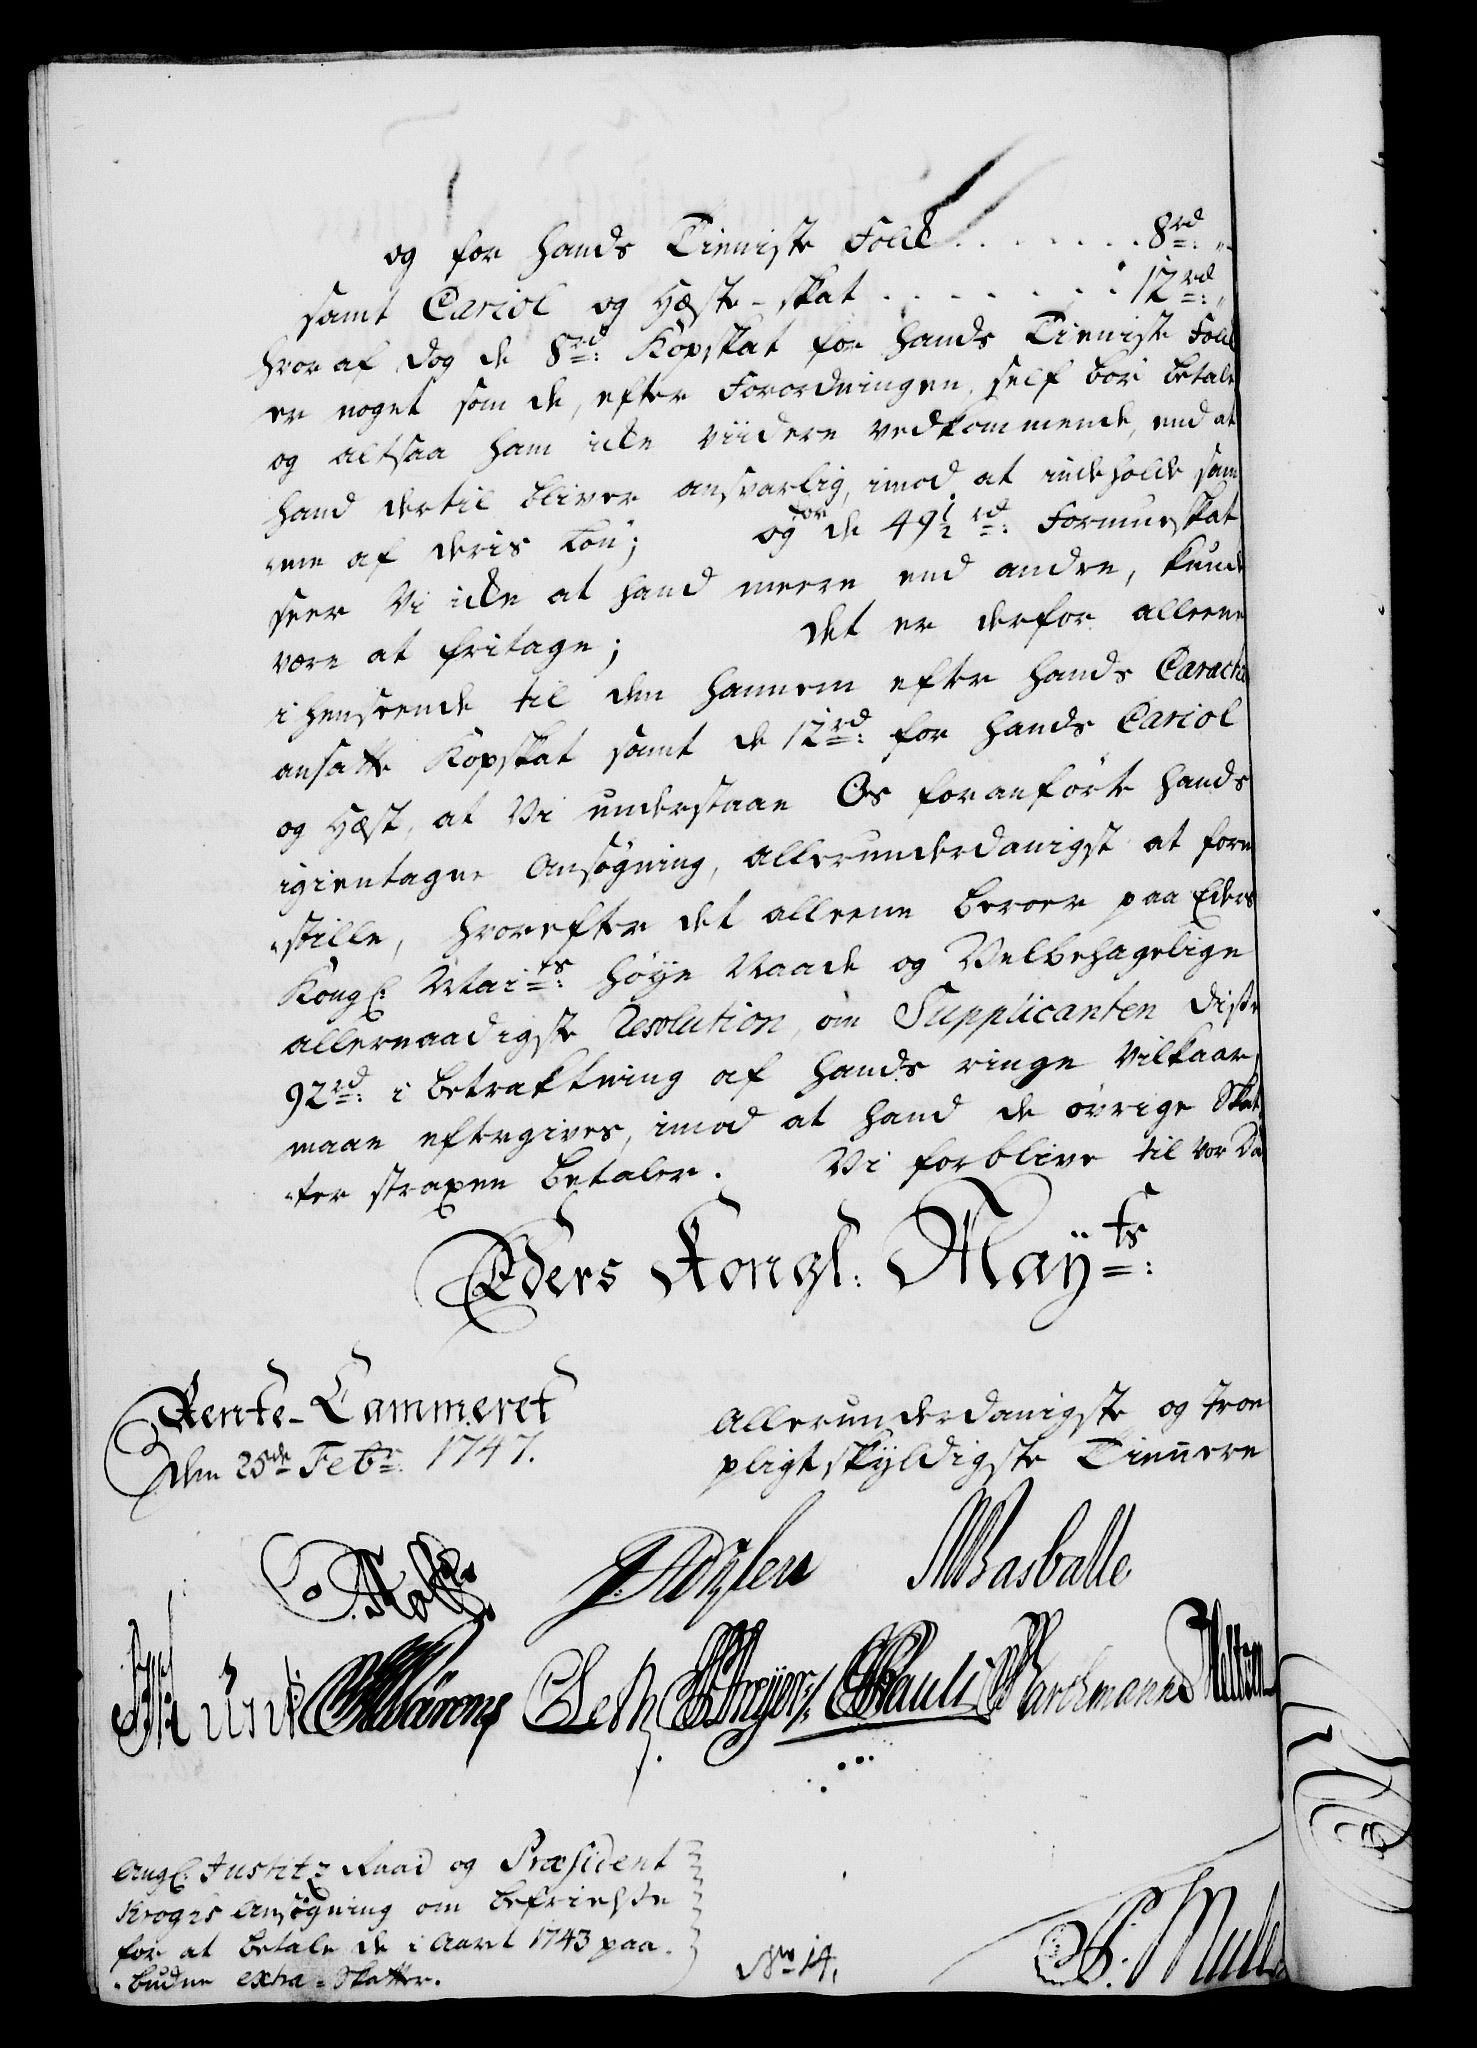 og for hands Tieniste Folck . . . . . . . 8 rd: "
samt Cariol og Hæste-skat . . . . . . . . 12 rd: "
hvor af dog de 8 rd: Kopskat for hands Tieniste Folck
er noget som de, efter Forordningen, self bör betale
og altsaa ham icke viidere vedkommende, end at
hand dertil bliver ansvarlig, imod at indeholde sam
me af deris Lön; og for de 49 1/2 rd: Formueskat
seer Vi icke at hand meere end andre, kunde
være at fritage; Det er derfor alleene
i henseende til den hannem efter hands Caracter
ansatte Kopskat samt de 12 rd: for hands Cariol
og Hæst, at Vi understaae Os foranförte hands
igientagne Ansögning, allerunderdanigst at fore
stille, hvorefter det alleene beroer paa Eders
Kongl: Maits: höye Naade og Velbehagelige
allernaadigste Resolution, om Supplicanten disse
92 rd: i betraktning af hands ringe Vilkaar,
maae eftergives, imod at hand de övrige Skat
ter straxen betaler. Vi forblive til vor Dö
Eders Kongl: Mayts:
Rente-Cammeret
den 25de Febr: 1747.
Allerunderdanigste og troe
pligtskyldigste Tiennere
Basballe
Pauli
Angl: Justitz Raad og Præsident
Kroghs Ansögning om befrielse
for at betale de i Aaret 1743 paa
budne extra-Skatter.
No 14.